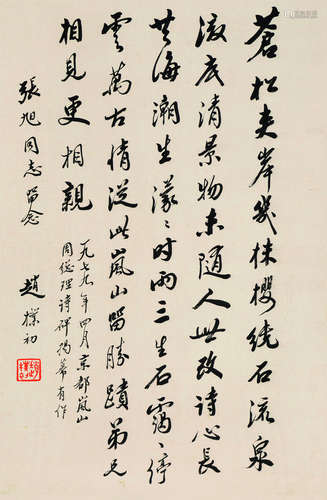 蒼松夾岸幾株櫻绕石流泉
澈底清景物未随人世改诗心长
共海潮生濛〻时雨三生石靄〻停
雲萬古情從此嵐山留勝蹟弟兄
相見更相親
一九七九年四月京都嵐山
周總理诗碑揭幕有作
張旭同志留念
趙樸初